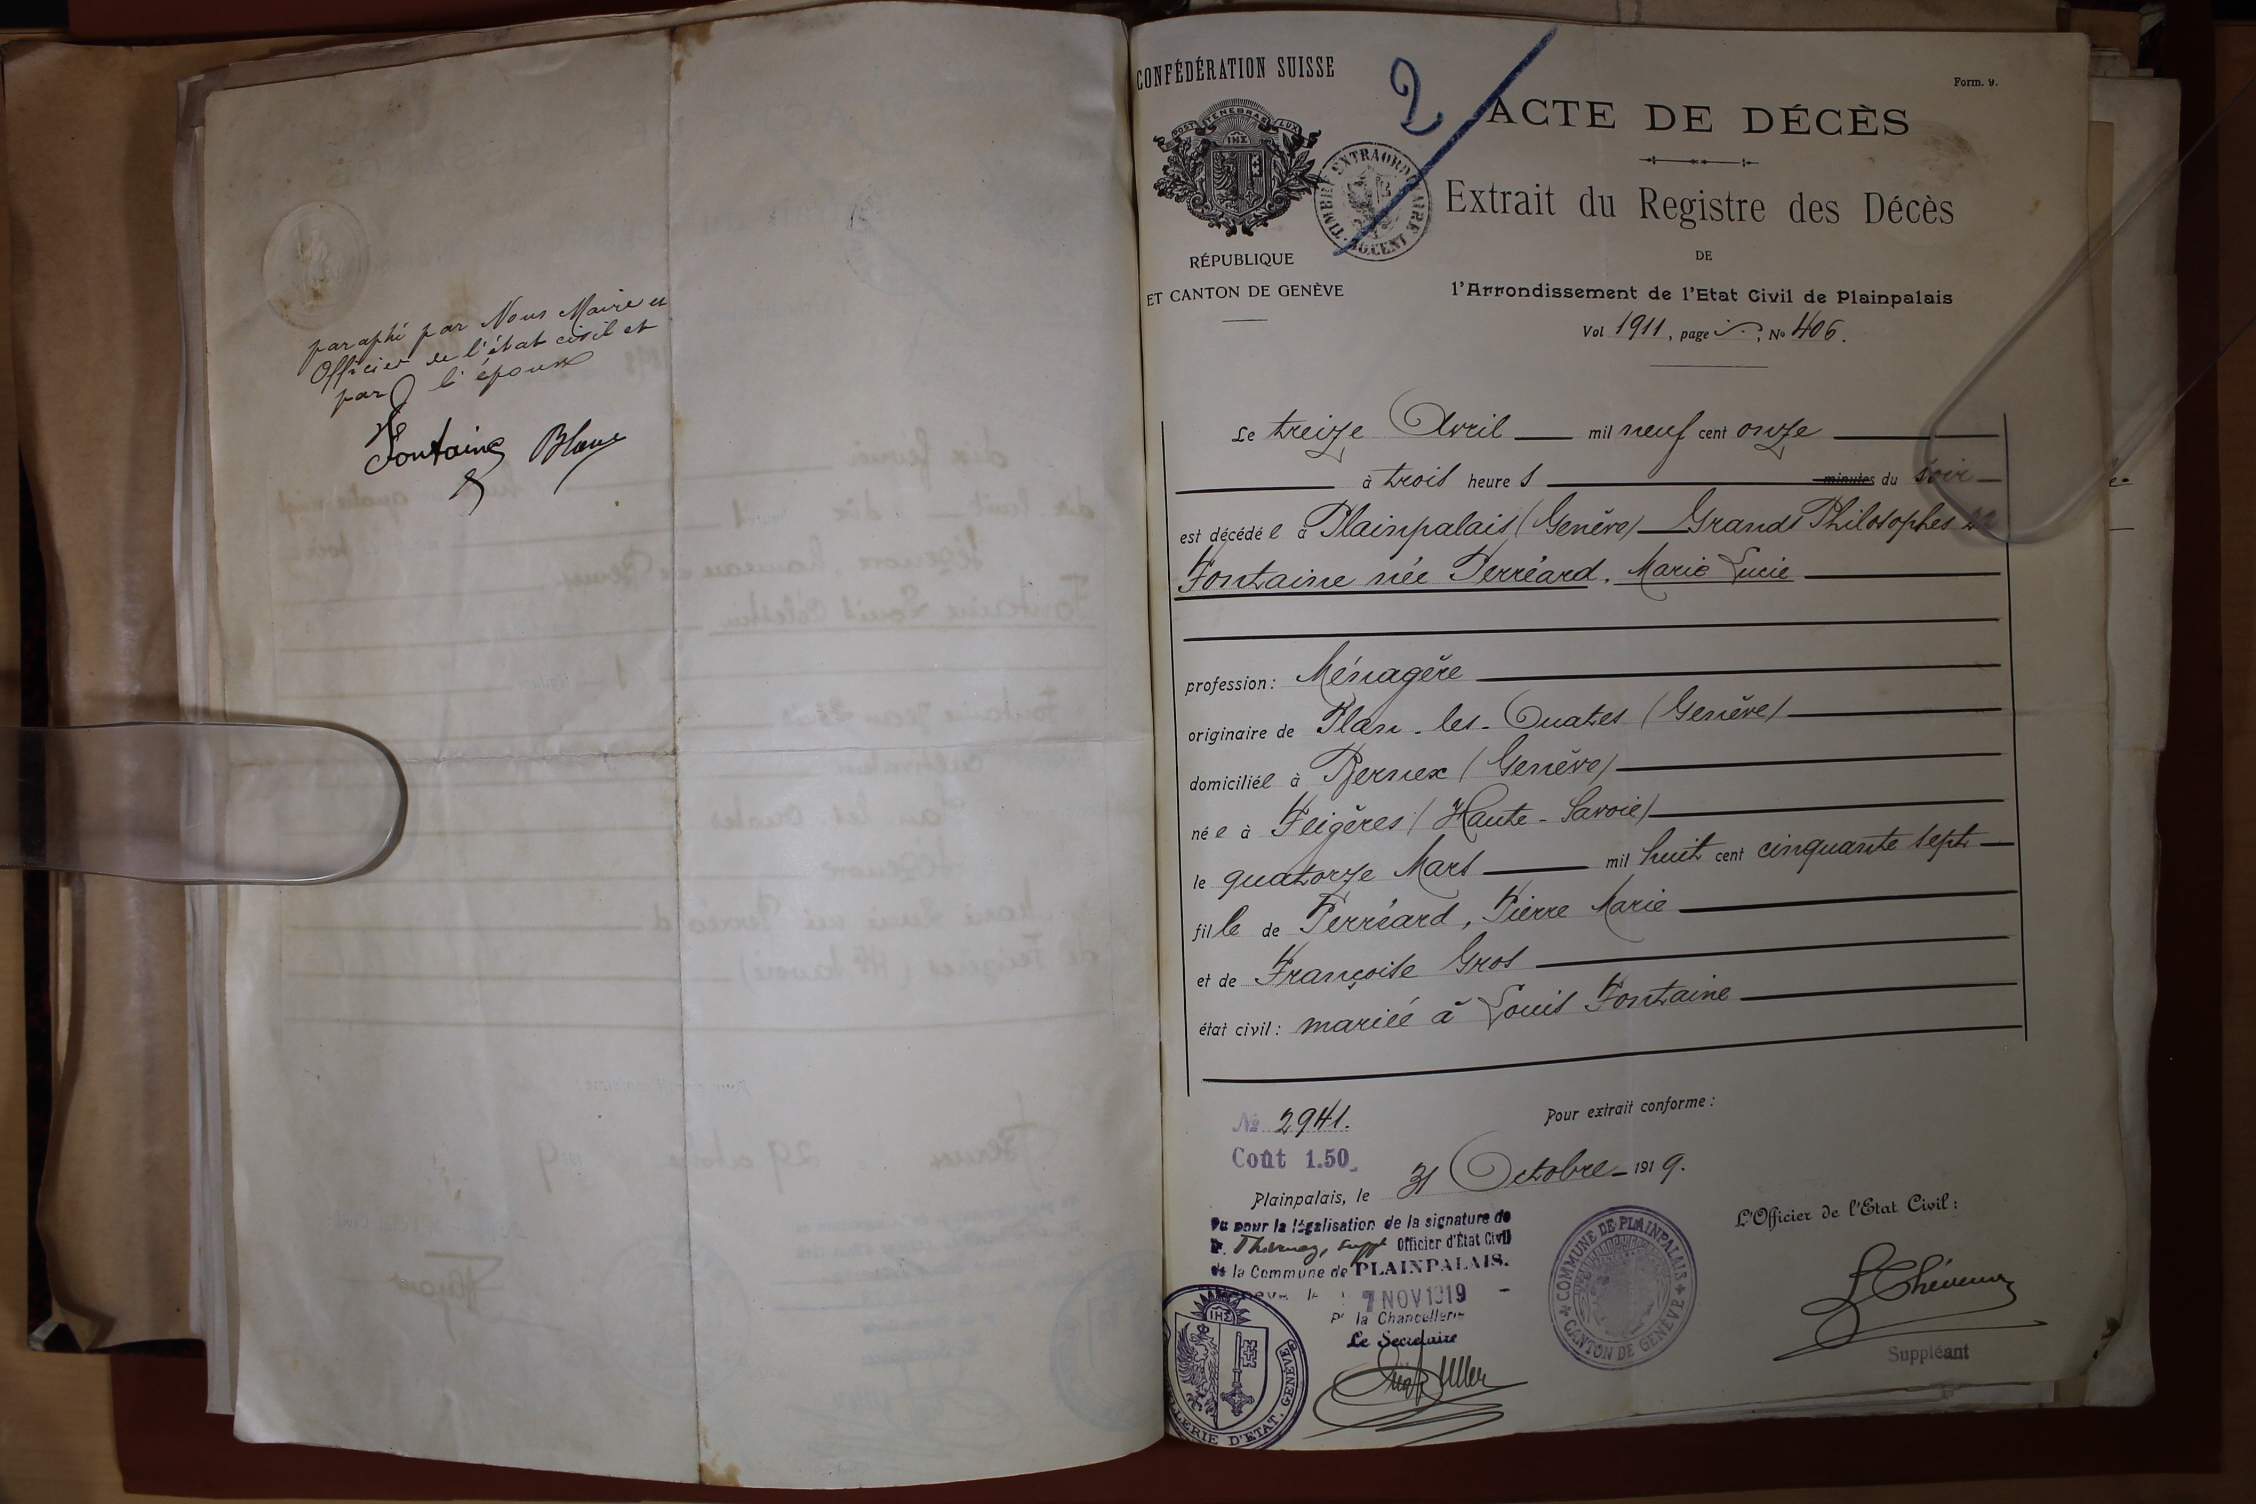 paraphé par Nous Maire et
Officier de l'état civil et
par l'époux
Fontaine Blanc
CONFÉDÉRATION SUISSE
POST TENEBRAS LUX
RÉPUBLIQUE
ET CANTON DE GENÈVE
2
TIMBRE EXTRAORDINAIRE
CENT
Form. 9.
ACTE DE DÉCÈS
Extrait du Registre des Décès
DE
l'Arrondissement de l'Etat Civil de Plainpalais
Vol 1911, page ; No 406.
Le treize Avril mil neuf cent onze
à trois heures minutes du soir
est décédée à Plainpalais (Genève) Grands Philosophes 22
Fontaine née Perréard, Marie Lucie
profession: Ménagère
originaire de Plan-les-Ouates (Genève)
domiciliée à Bernex (Genève)
née à Feigères (Haute-Savoie)
le quatorze Mars mil huit cent cinquante sept
fille de Perréard, Pierre Marie
et de Françoise Gros
état civil: mariée à Louis Fontaine
No 2941.
Coût 1.50
Pour extrait conforme:
Plainpalais, le 31 Octobre 1919.
Vu pour la légalisation de la signature de
M. Thévenoz, suppt Officier d'État Civil
de la Commune de PLAINPALAIS.
Genève le 7 NOV 1919
Pr la Chancellerie
Le Secrétaire
COMMUNE DE PLAINPALAIS
CANTON DE GENÈVE
L'Officier de l'Etat Civil:
Suppléant
D'ETAT. GENÈVE